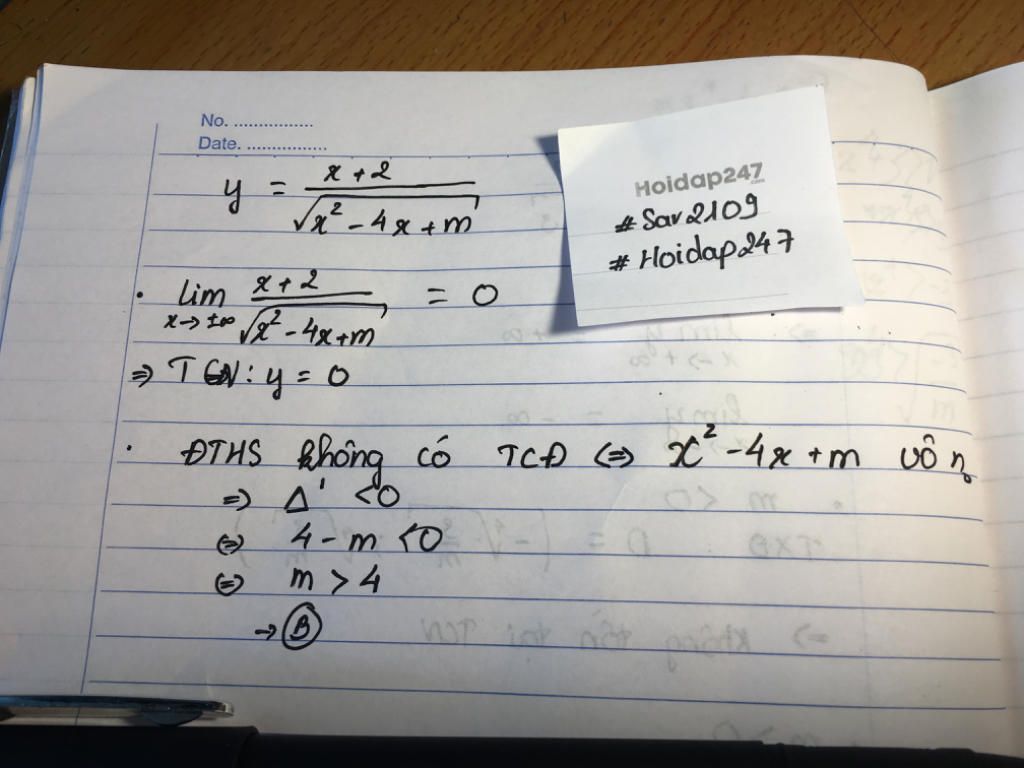 No. ................
Date. ................
y = x + 2 / √(x² - 4x + m)
Hoidap247
.com
# Sar2109
# Hoidap247
• lim x→±∞ x + 2 / √(x² - 4x + m) = 0
⇒ TCN: y = 0
• ĐTHS không có TCĐ ⇔ x² - 4x + m vô n₀
⇒ Δ' < 0
⇔ 4 - m < 0
⇔ m > 4
→ B